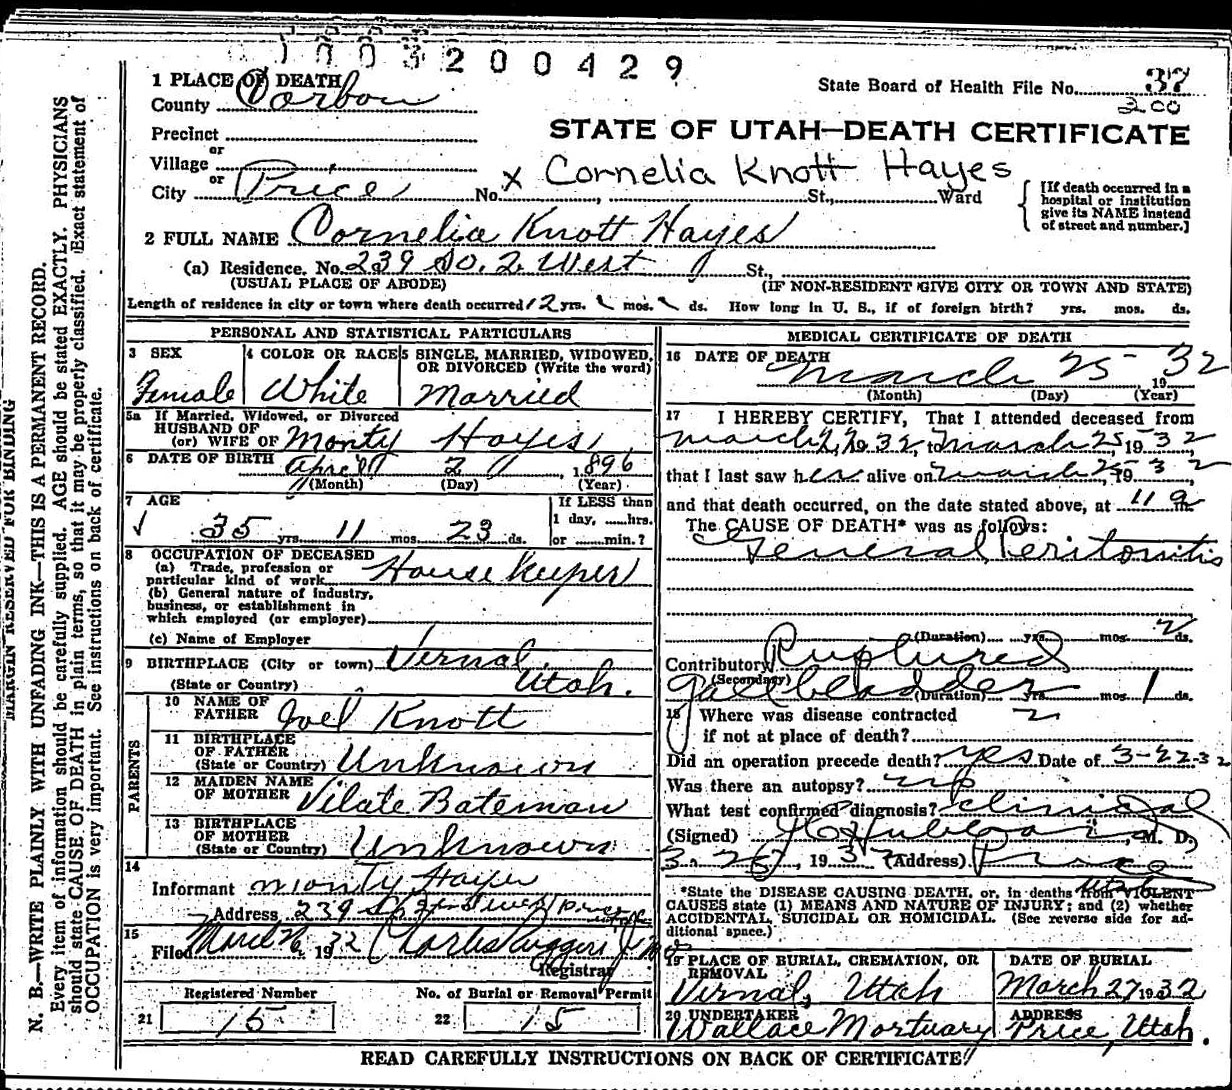 1003200429
1 PLACE OF DEATH
State Board of Health File No. 37
200
County Carbon
STATE OF UTAH—DEATH CERTIFICATE
Precinct
or
Village
or
City Price No. x Cornelia Knott Hayes St., Ward
[If death occurred in a
hospital or institution
give its NAME instead
of street and number.]
2 FULL NAME Cornelia Knott Hayes
(a) Residence. No. 239 So. 2 West St.,
(USUAL PLACE OF ABODE) (IF NON-RESIDENT GIVE CITY OR TOWN AND STATE)
Length of residence in city or town where death occurred 12 yrs. mos. ds. How long in U. S., if of foreign birth? yrs. mos. ds.
PERSONAL AND STATISTICAL PARTICULARS
3 SEX
Female
4 COLOR OR RACE
White
5 SINGLE, MARRIED, WIDOWED,
OR DIVORCED (Write the word)
Married
5a If Married, Widowed, or Divorced
HUSBAND OF
(or) WIFE OF Monty Hayes
6 DATE OF BIRTH April 2 1896
(Month) (Day) (Year)
7 AGE
35 yrs. 11 mos. 23 ds.
If LESS than
1 day, ......hrs.
or ......min.?
8 OCCUPATION OF DECEASED
(a) Trade, profession or
particular kind of work House Keeper
(b) General nature of industry,
business, or establishment in
which employed (or employer)
(c) Name of Employer
9 BIRTHPLACE (City or town) Vernal
(State or Country) Utah.
PARENTS
10 NAME OF
FATHER Joel Knott
11 BIRTHPLACE
OF FATHER
(State or Country) Unknown
12 MAIDEN NAME
OF MOTHER Vilate Bateman
13 BIRTHPLACE
OF MOTHER
(State or Country) Unknown
14
Informant Monty Hayes
Address 239 So. 2nd West Price
15
Filed March 26, 1932 Charles Ruggeri Jr
Registrar
Registered Number
21 15
No. of Burial or Removal Permit
22 15
MEDICAL CERTIFICATE OF DEATH
16 DATE OF DEATH
March 25 1932
(Month) (Day) (Year)
17 I HEREBY CERTIFY, That I attended deceased from
March 22, 1932, to March 25, 1932
that I last saw her alive on March 25, 1932
and that death occurred, on the date stated above, at 11 a m
The CAUSE OF DEATH* was as follows:
General Peritonitis
(Duration) yrs. mos. 2 ds.
Contributory Ruptured
(Secondary)
gall bladder (Duration) yrs. mos. 1 ds.
18 Where was disease contracted
if not at place of death?
Did an operation precede death? yes Date of 3-22-32
Was there an autopsy? no
What test confirmed diagnosis? clinical
(Signed) M. D.
3. 26, 1932 (Address) Price
Utah
*State the DISEASE CAUSING DEATH, or, in deaths from VIOLENT
CAUSES state (1) MEANS AND NATURE OF INJURY; and (2) whether
ACCIDENTAL, SUICIDAL OR HOMICIDAL. (See reverse side for ad-
ditional space.)
19 PLACE OF BURIAL, CREMATION, OR
REMOVAL
Vernal, Utah
DATE OF BURIAL
March 27 1932
20 UNDERTAKER
Wallace Mortuary
ADDRESS
Price, Utah.
READ CAREFULLY INSTRUCTIONS ON BACK OF CERTIFICATE
MARGIN RESERVED FOR BINDING
N. B.—WRITE PLAINLY WITH UNFADING INK—THIS IS A PERMANENT RECORD.
Every item of information should be carefully supplied. AGE should be stated EXACTLY. PHYSICIANS
should state CAUSE OF DEATH in plain terms, so that it may be properly classified. Exact statement of
OCCUPATION is very important. See instructions on back of certificate.